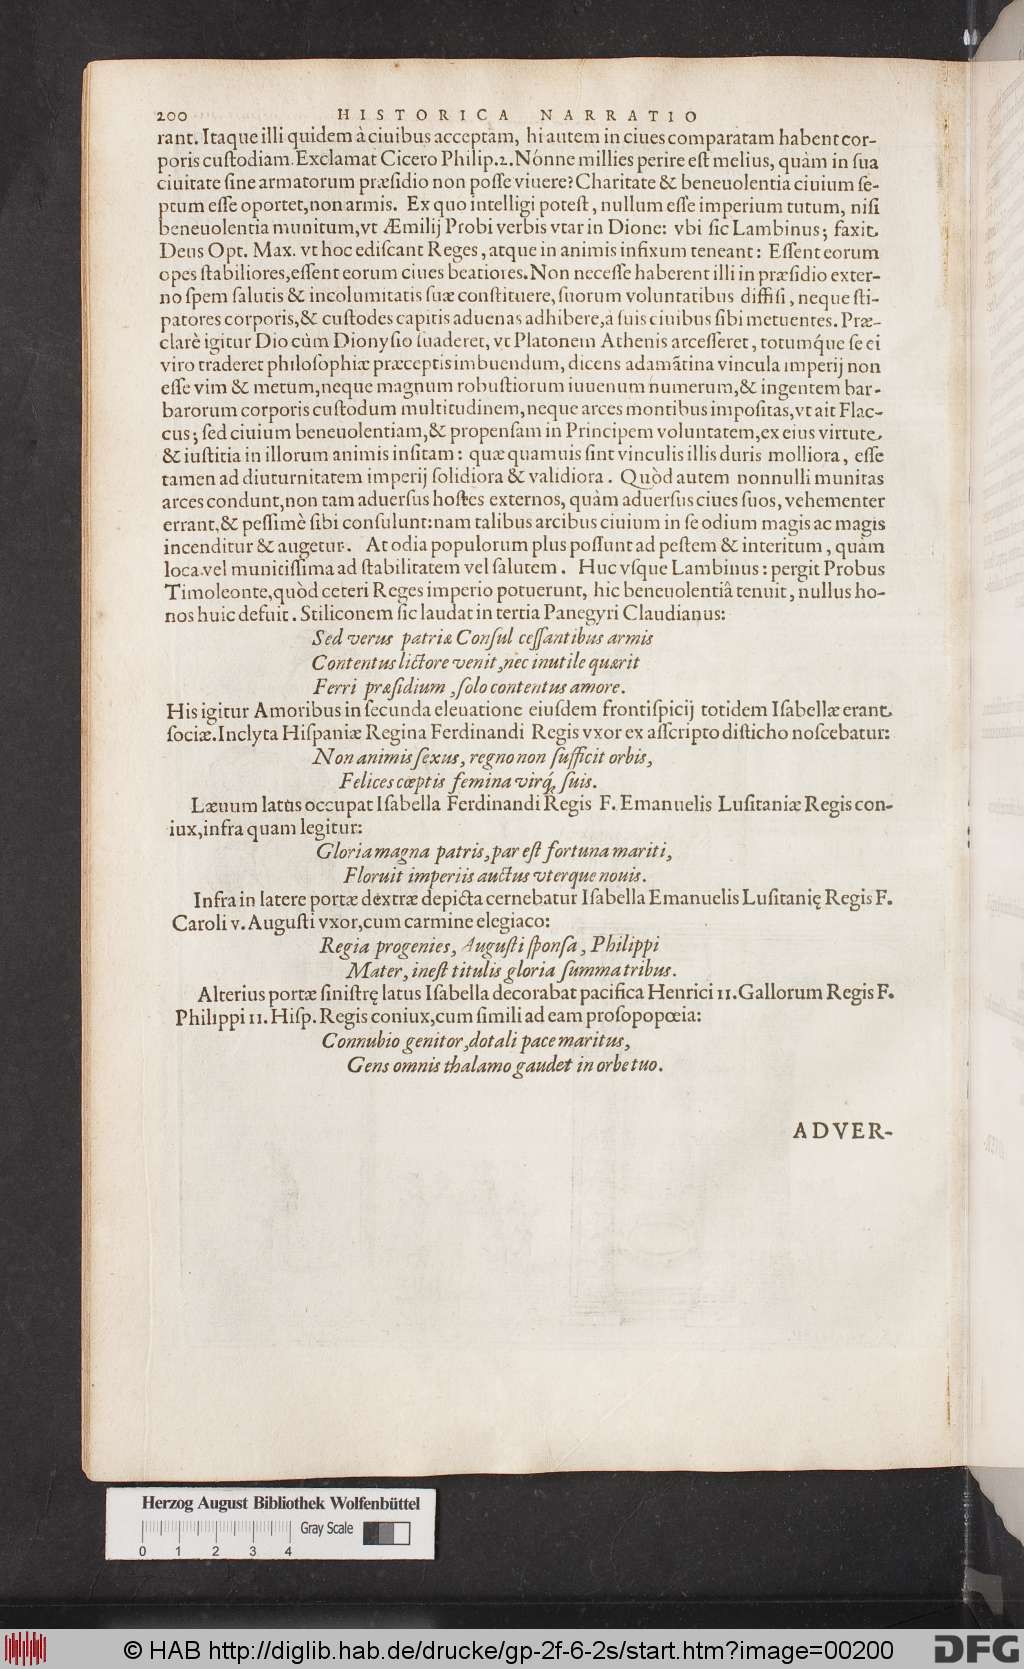 200 HISTORICA NARRATIO
rant. Itaque illi quidem à ciuibus acceptam, hi autem in ciues comparatam habent cor-
poris custodiam. Exclamat Cicero Philip. 2. Nónne millies perire est melius, quàm in sua
ciuitate sine armatorum præsidio non posse viuere? Charitate & beneuolentia ciuium se-
ptum esse oportet, non armis. Ex quo intelligi potest, nullum esse imperium tutum, nisi
beneuolentia munitum, vt Æmilij Probi verbis vtar in Dione: vbi sic Lambinus; faxit
Deus Opt. Max. vt hoc ediscant Reges, atque in animis infixum teneant: Essent eorum
opes stabiliores, essent eorum ciues beatiores. Non necesse haberent illi in præsidio exter-
no spem salutis & incolumitatis suæ constituere, suorum voluntatibus diffisi, neque sti-
patores corporis, & custodes capitis aduenas adhibere, à suis ciuibus sibi metuentes. Præ-
clarè igitur Dio cùm Dionysio suaderet, vt Platonem Athenis arcesseret, totumq́ue se ei
viro traderet philosophiæ præceptis imbuendum, dicens adamãtina vincula imperij non
esse vim & metum, neque magnum robustiorum iuuenum numerum, & ingentem bar-
barorum corporis custodum multitudinem, neque arces montibus impositas, vt ait Flac-
cus; sed ciuium beneuolentiam, & propensam in Principem voluntatem, ex eius virtute
& iustitia in illorum animis insitam: quæ quamuis sint vinculis illis duris molliora, esse
tamen ad diuturnitatem imperij solidiora & validiora. Quòd autem nonnulli munitas
arces condunt, non tam aduersus hostes externos, quàm aduersus ciues suos, vehementer
errant, & pessimè sibi consulunt: nam talibus arcibus ciuium in se odium magis ac magis
incenditur & augetur. At odia populorum plus possunt ad pestem & interitum, quàm
loca vel munitissima ad stabilitatem vel salutem. Huc vsque Lambinus: pergit Probus
Timoleonte, quòd ceteri Reges imperio potuerunt, hic beneuolentiâ tenuit, nullus ho-
nos huic defuit. Stiliconem sic laudat in tertia Panegyri Claudianus:
Sed verus patriæ Consul cessantibus armis
Contentus lictore venit, nec inutile quærit
Ferri præsidium, solo contentus amore.
His igitur Amoribus in secunda eleuatione eiusdem frontispicij totidem Isabellæ erant
sociæ. Inclyta Hispaniæ Regina Ferdinandi Regis vxor ex asscripto disticho noscebatur:
Non animis sexus, regno non sufficit orbis,
Felices cœptis femina virq́; suis.
Læuum latus occupat Isabella Ferdinandi Regis F. Emanuelis Lusitaniæ Regis con-
iux, infra quam legitur:
Gloria magna patris, par est fortuna mariti,
Floruit imperiis auctus vterque nouis.
Infra in latere portæ dextræ depicta cernebatur Isabella Emanuelis Lusitanię Regis F.
Caroli v. Augusti vxor, cum carmine elegiaco:
Regia progenies, Augusti sponsa, Philippi
Mater, inest titulis gloria summa tribus.
Alterius portæ sinistrę latus Isabella decorabat pacifica Henrici II. Gallorum Regis F.
Philippi II. Hisp. Regis coniux, cum simili ad eam prosopopœia:
Connubio genitor, dotali pace maritus,
Gens omnis thalamo gaudet in orbe tuo.
ADVER-
Herzog August Bibliothek Wolfenbüttel
Gray Scale
0 1 2 3 4
© HAB http://diglib.hab.de/drucke/gp-2f-6-2s/start.htm?image=00200
DFG